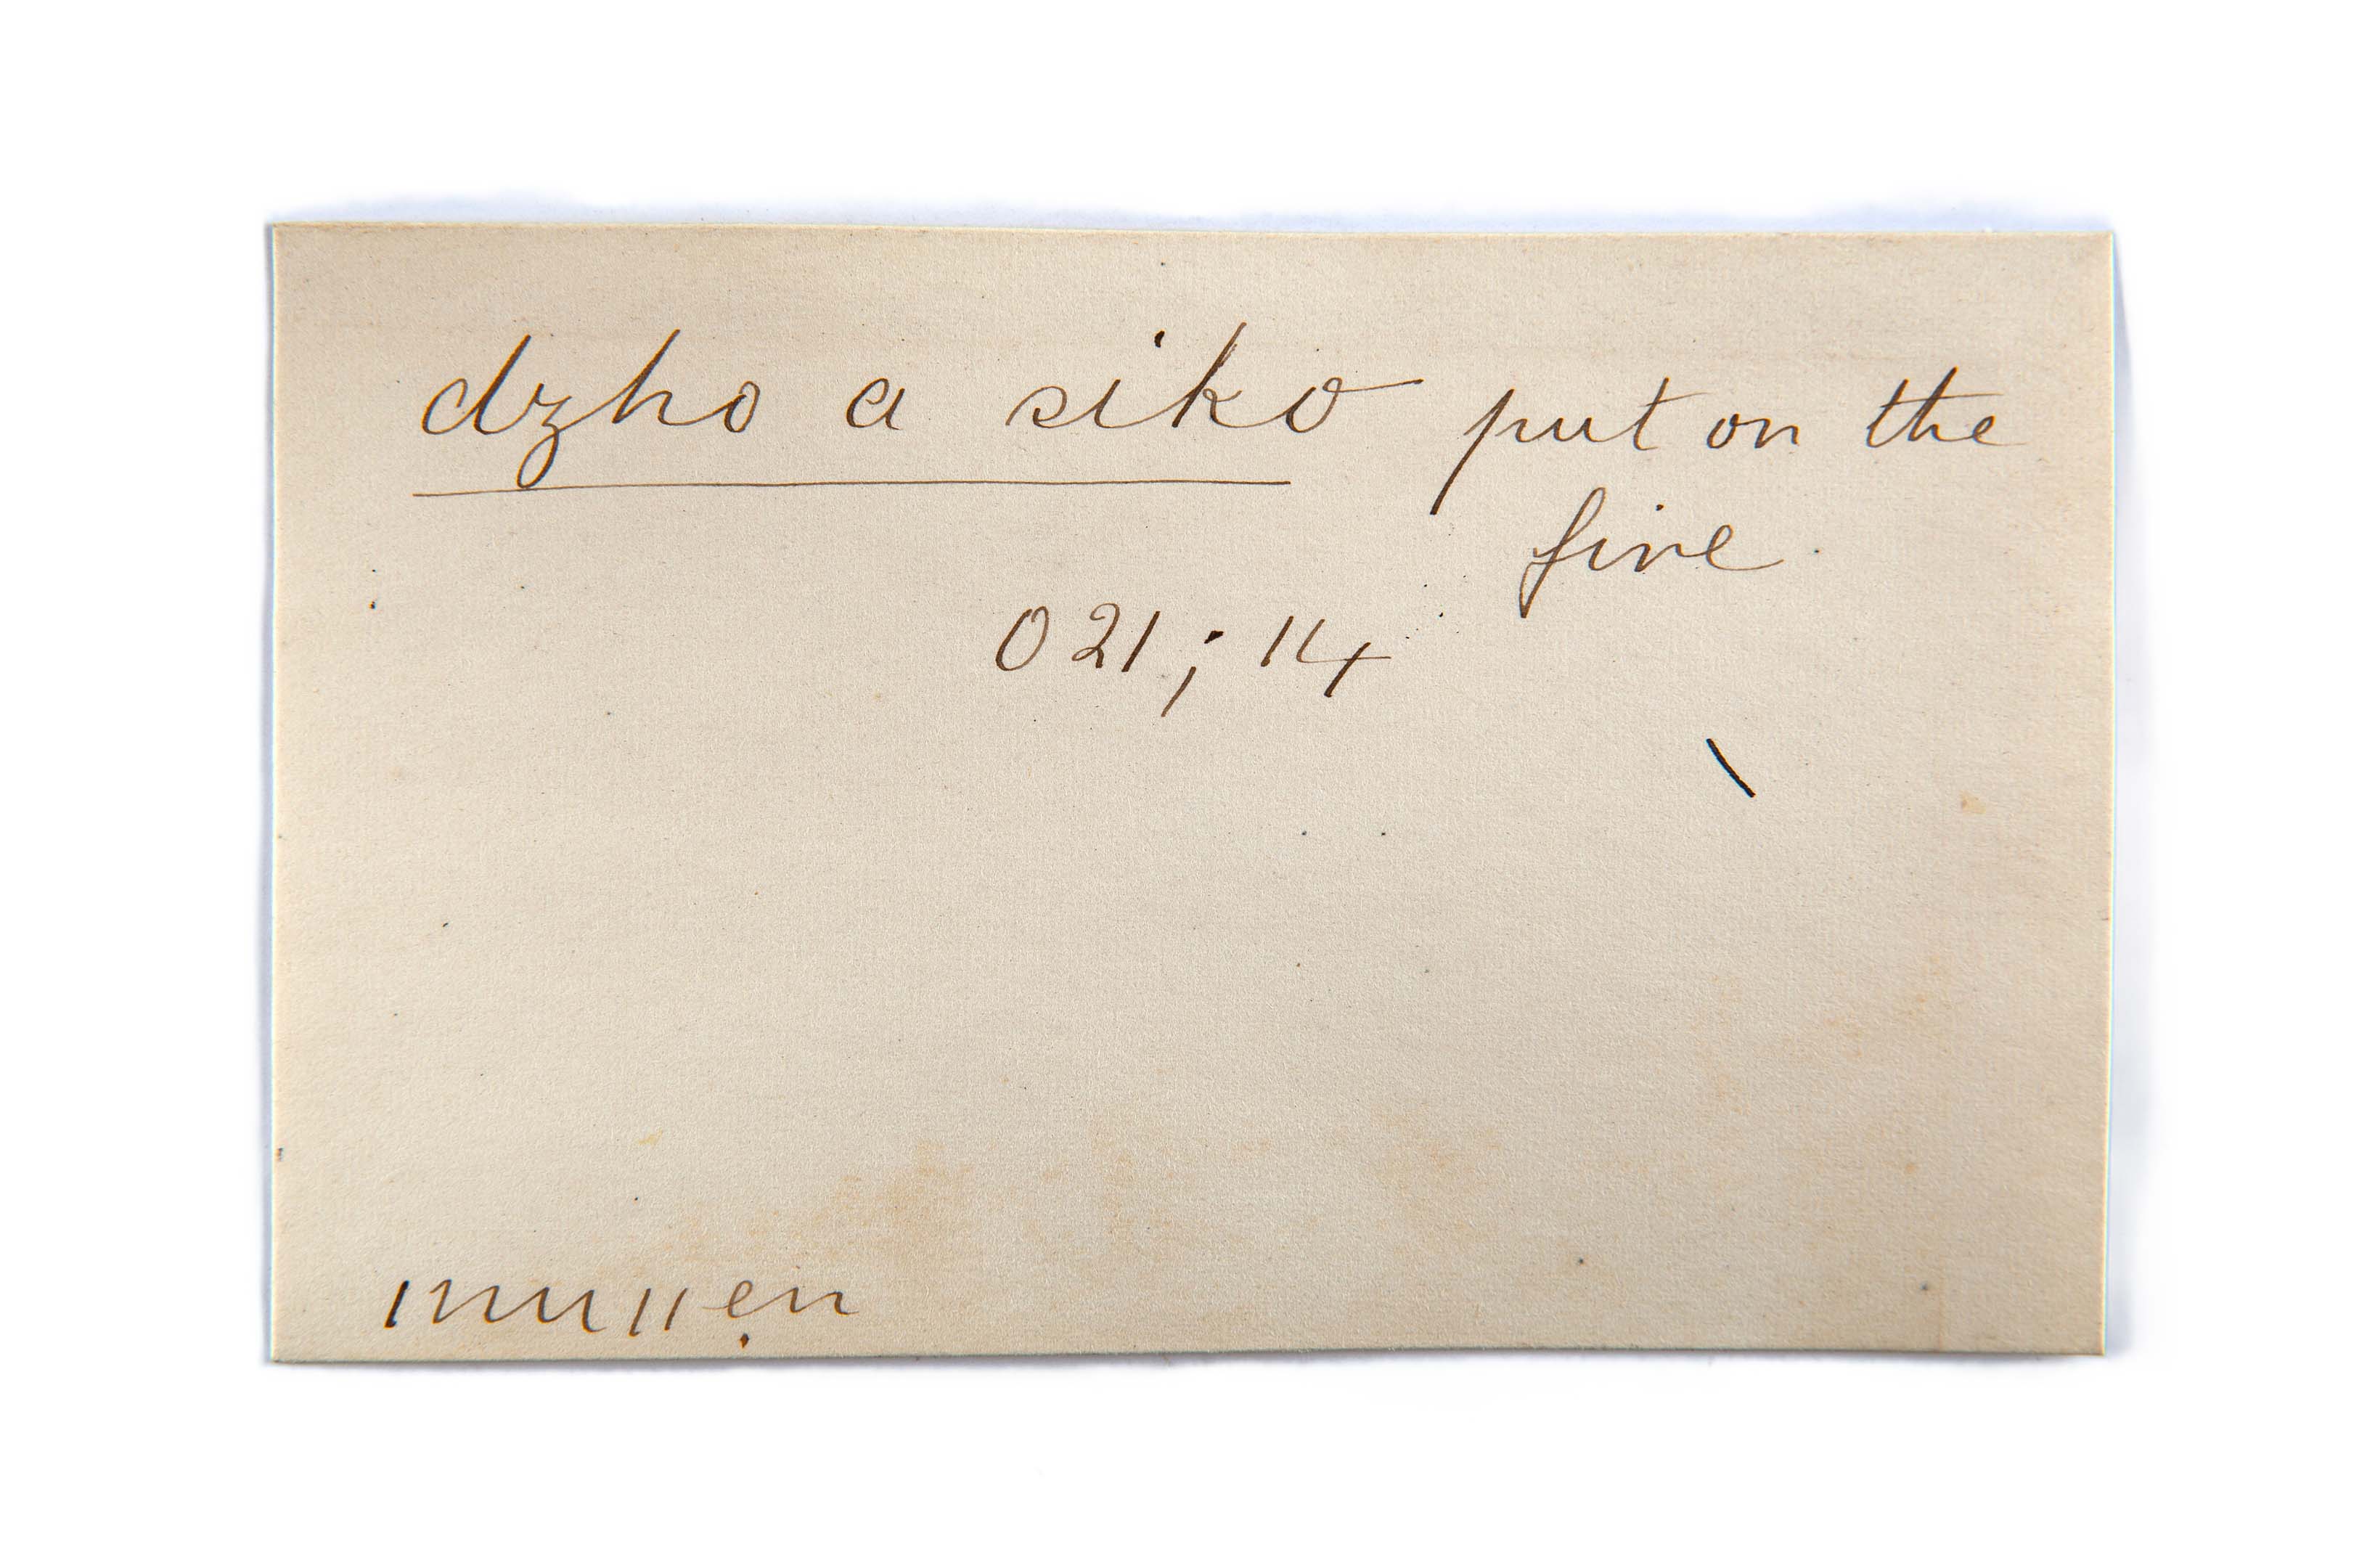 dzho a siko put on the
fire.
021; 14